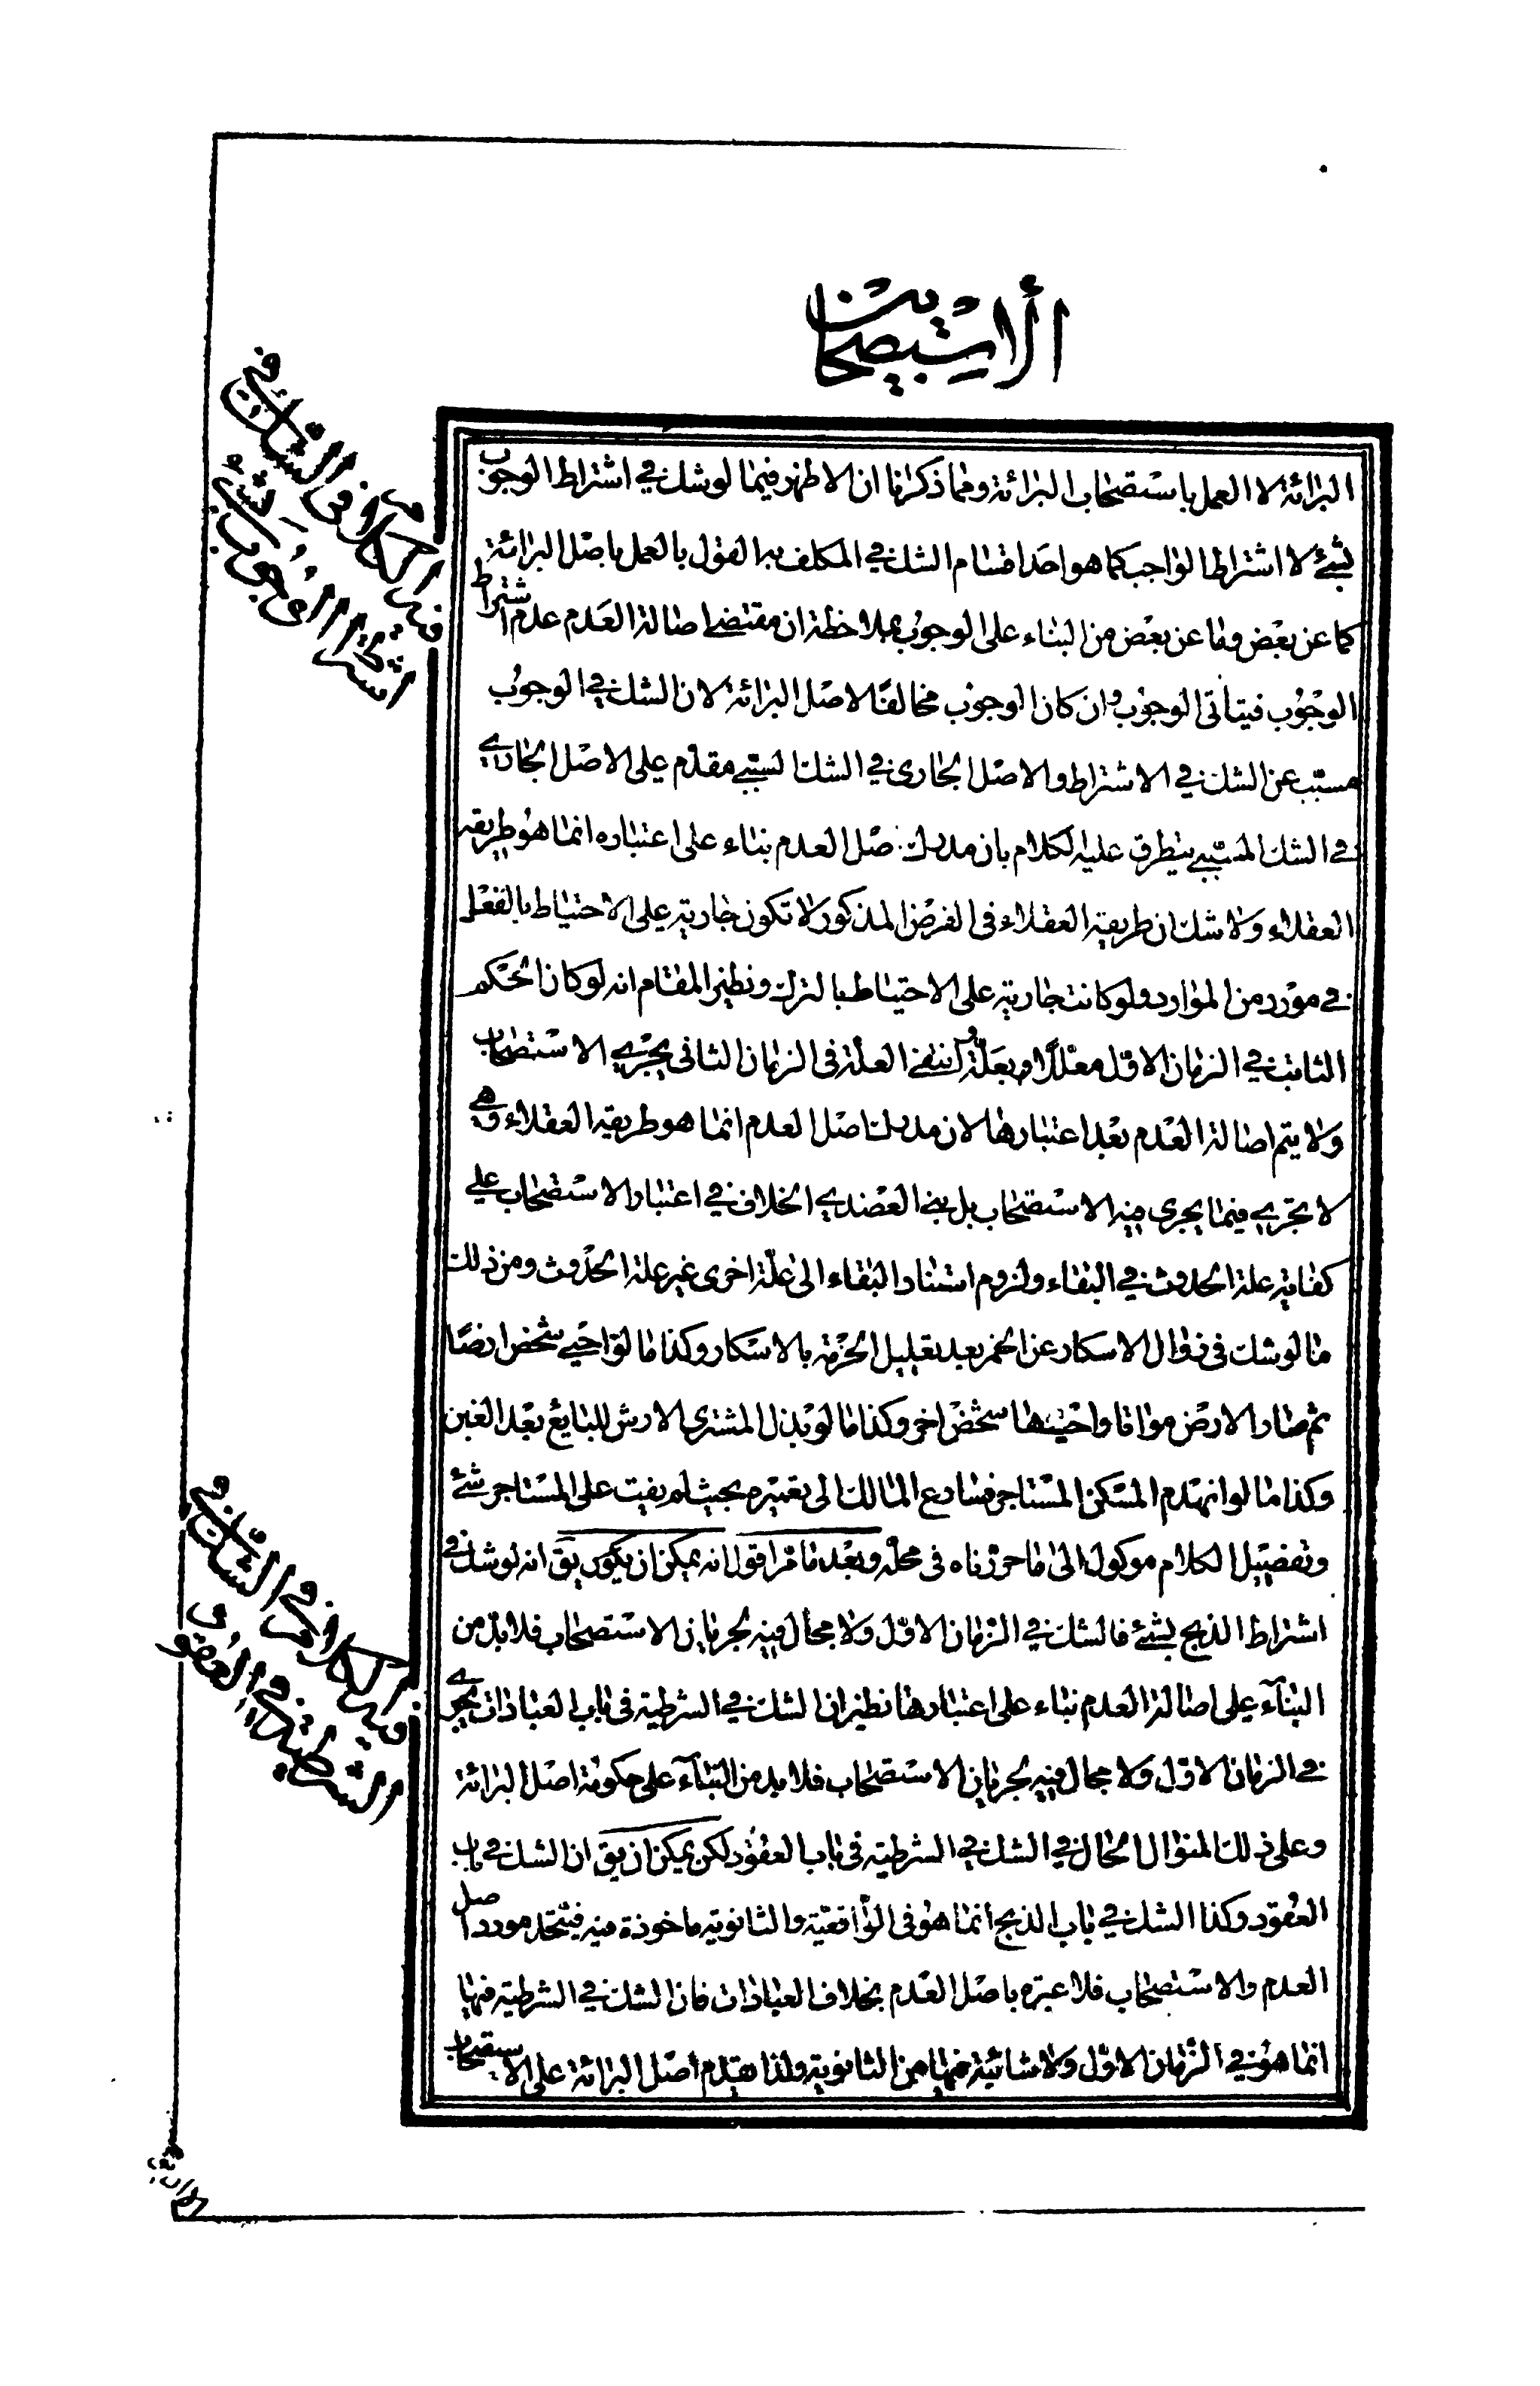 الاستصحاب
البرائة لا العمل باستصحاب البرائة ومما ذكرنا ان الاظهر فيما لو شك في اشتراط الوجوب
بشئ لا اشتراط الواجب كما هو احد اقسام الشك في المكلف به القول بالعمل باصل البرائة
كما عن بعض وما عن بعض من البناء على الوجوب بملاحظة ان مقتضى اصالة العدم عدم اشتراط
الوجوب فيتاتى الوجوب وان كان الوجوب مخالفا لاصل البرائة لان الشك في الوجوب
مسبب عن الشك في الاشتراط والاصل الجارى في الشك السببي مقدم على الاصل الجاري
في الشك المسببي يتطرق عليه الكلام بان مدرك اصل العدم بناء على اعتباره انما هو طريقه
العقلاء ولا شك ان طريقة العقلاء فى الفرض المذكور لا تكون جارية على الاحتياط بالفعل
في مورد من الموارد ولو كانت جارية على الاحتياط بالترك ونظير المقام انه لو كان الحكم
الثابت في الزمان الاول معللا بعلة وانتفى العلة فى الزمان الثانى يجري الاستصحاب
ولا يتم اصالة العدم بعد اعتبارها لان مدرك اصل العدم انما هو طريقه العقلاء وهي
لا تجري فيما يجرى فيه الاستصحاب بل بنى العضدي الخلاف في اعتبار الاستصحاب على
كفاية علة الحدوث في البقاء ولزوم استناد البقاء الى علة اخرى غير علة الحدوث ومن ذلك
ما لو شك فى زوال الاسكار عن الخمر بعد تعليل الحرمة بالاسكار وكذا ما لو احيى شخص ارضا
ثم صار الارض مواتا واحيتها شخص اخر وكذا ما لو بذل المشترى الارش للبايع بعد الغبن
وكذا ما لو انهدم المسكن المستاجر فسارع المالك الى تعميره بحيث لم يفت على المستاجر شئ
وتفصيل الكلام موكول الى ما حررناه فى محله وبعد ما مر اقول انه يمكن ان يكون يق انه لو شك في
اشتراط الذبح بشئ فالشك في الزمان الاول ولا مجال فيه لجريان الاستصحاب فلا بد من
البناء على اصالة العدم بناء على اعتبارها نظير ان الشك في الشرطية فى باب العبادات يجري
في الزمان الاول ولا مجال فيه لجريان الاستصحاب فلا بد من البناء على حكومة اصل البرائة
وعلى ذلك المنوال الحال في الشك في الشرطية فى باب العقود لكن يمكن ان يق ان الشك في باب
العقود وكذا الشك في باب الذبح انما هو فى الواقعية والثانوية ماخوذة فيه فيتحد مورد اصل
العدم والاستصحاب فلا عبرة باصل العدم بخلاف العبادات فان الشك في الشرطية فيها
انما هو في الزمان الاول ولا شائبة فيها من الثانوية ولذا يقدم اصل البرائة على الاستصحاب
فيه الكلام فى الشك في
اشتراط الوجوب بشئ
فيه الكلام في الشك في
الشرطية في العقود